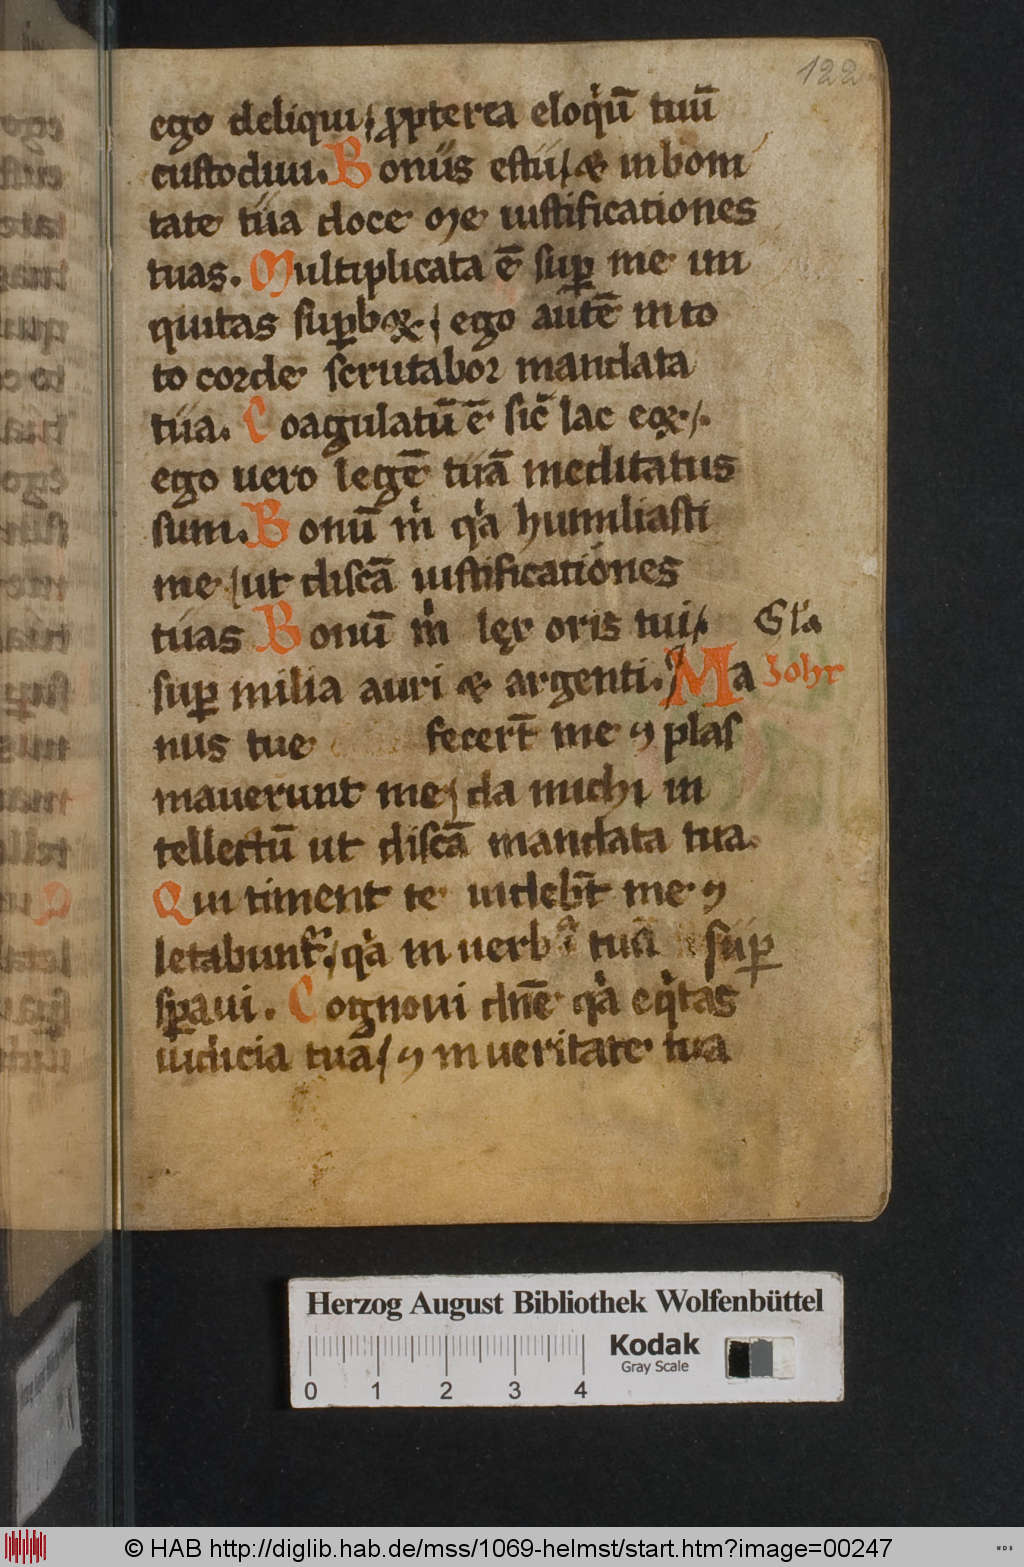 122
ego deliqui / ꝓpterea eloqͥū tuū
custodiui. Bonus estu / & in boni
tate tua doce me iustificationes
tuas. Multiplicata ē suꝑ me ini
quitas suꝑboꝝ / ego autē in to
to corde scrutabor mandata
tua. Coagulatū ē sic̄ lac eoꝝ /.
ego uero legē tuā meditatus
sum. Bonū mͥ qͥa humiliasti
me / ut discā iustificationes
tuas Bonū mͥ lex oris tui / Gl̄a
suꝑ milia auri & argenti. Ma Iohr
nus tue fecert̄ me ⁊ plas
mauerunt me / da michi in
tellectū ut discā mandata tua.
Qui timent te uidebt̄ me ⁊
letabunt̄ / qͥa in uerba tua suꝑ
sꝑaui. Cognoui dn̄e qͥa eqͥtas
iudicia tua / ⁊ in ueritate tua
Herzog August Bibliothek Wolfenbüttel
Kodak
Gray Scale
0 1 2 3 4
© HAB http://diglib.hab.de/mss/1069-helmst/start.htm?image=00247